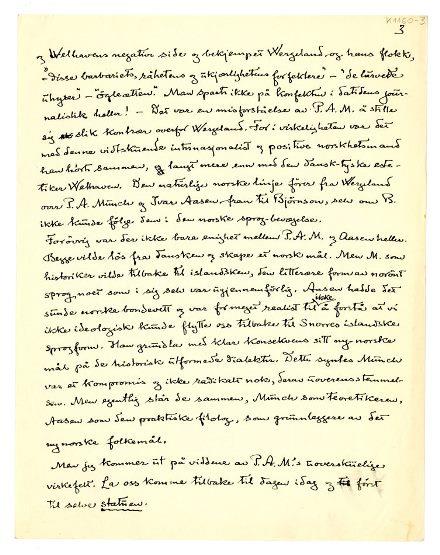 K1160-3
3
og Welhavens negative side og bekjempet Wergeland, og hans flokk,
"disse barbariets, råhetens og ukjærlighetens forfektere" – "de lærvede
uhyrer" – "øgleætten". Man sparte ikke på konfekten i datidens jour-
nalistikk heller! – Det var en misforståelse av P.A.M. å stille
sig slik kontrær overfor Wergeland. For i virkeligheten var det
med denne vidtskuende internasjonalist og positive norskhetsmand
han hørte sammen, og langt mere enn med den dansk-tyske este-
tiker Welhaven. Den naturlige norske linje fører fra Wergeland
over P.A. Munch og Ivar Aasen fram til Björnson, selv om B.
ikke kunde følge dem i den norske sprogbevegelse.
Forøvrig var der ikke bare enighet mellem P.A.M. og Aasen heller.
Begge vilde løs fra dansken og skape et norsk mål. Men M. som
historiker vilde tilbake til islandsken, den litterære form av norrönt
sprog, noet som i sig selv var ugjennemførlig. Aasen hadde det
sunde norske bondevett og var formeget realist til ikke å forstå at vi
ikke ideologisk kunde flytte oss tilbake til Snorres islandske
sprogform. Han grundla med klar konsekvens sitt ny-norske
mål på de historisk utformede dialekter. Dette syntes Munch
var et kompromis og ikke radikalt nok, derav uoverensstemmel-
sen. Men egentlig står de sammen, Munch som teoretikeren,
Aasen som den praktiske filolog, som grunnleggere av det
nynorske folkemål.
Men jeg kommer ut på viddene av P.A.M.'s uoverskuelige
virkefelt. La oss komme tilbake til dagen idag og først
til selve statuen.